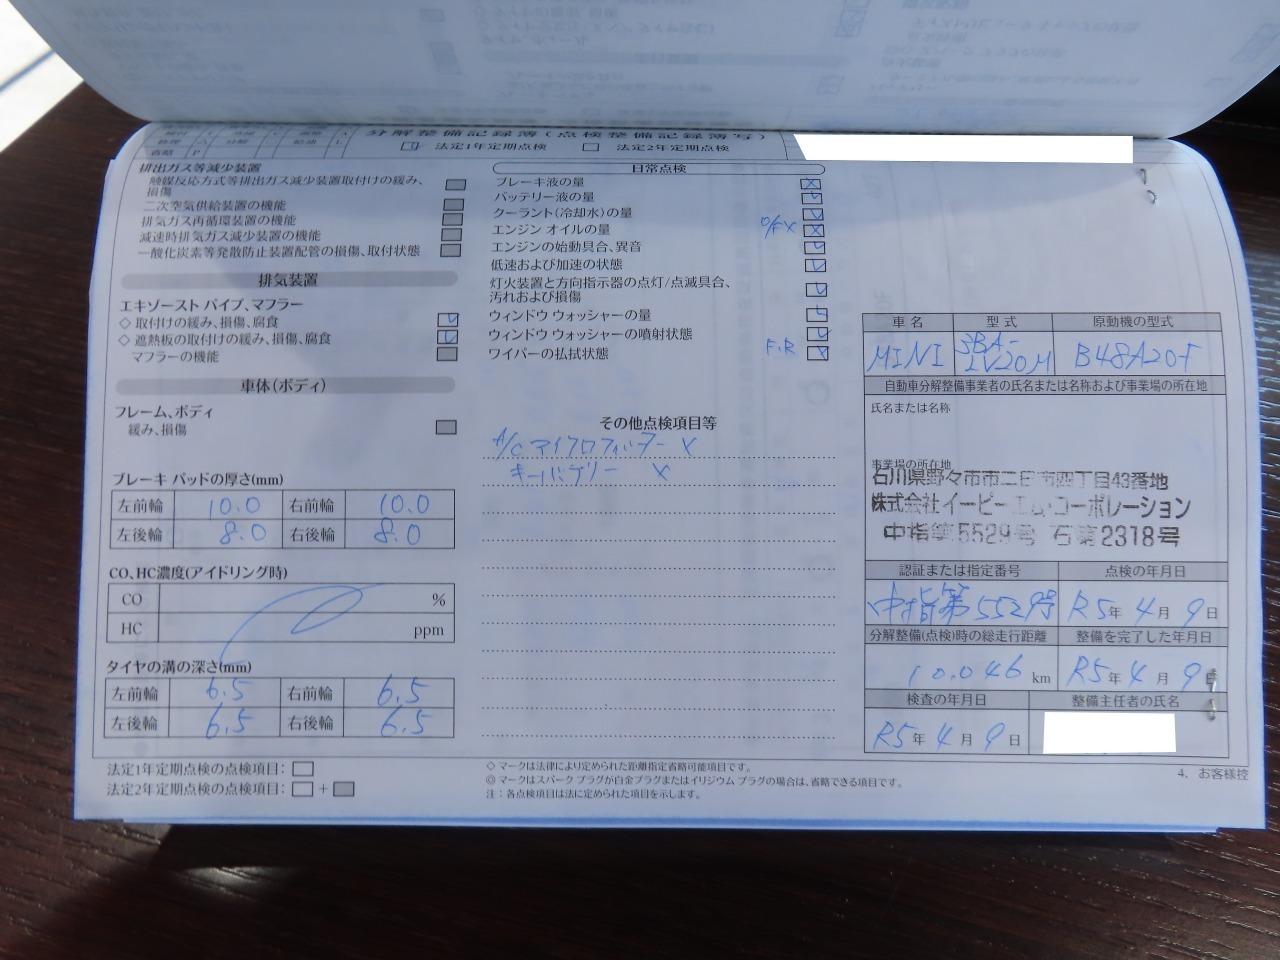 分解整備記録簿(点検整備記録簿写)
法定1年定期点検 法定2年定期点検
省略 P
排出ガス等減少装置
触媒反応方式等排出ガス減少装置取付けの緩み、
損傷
二次空気供給装置の機能
排気ガス再循環装置の機能
減速時排気ガス減少装置の機能
一酸化炭素等発散防止装置配管の損傷、取付状態
排気装置
エキゾースト パイプ、マフラー
◇ 取付けの緩み、損傷、腐食
◇ 遮熱板の取付けの緩み、損傷、腐食
マフラーの機能
車体(ボディ)
フレーム、ボディ
緩み、損傷
ブレーキ パッドの厚さ(mm)
左前輪 10.0 右前輪 10.0
左後輪 8.0 右後輪 8.0
CO、HC濃度(アイドリング時)
CO %
HC ppm
タイヤの溝の深さ(mm)
左前輪 6.5 右前輪 6.5
左後輪 6.5 右後輪 6.5
法定1年定期点検の点検項目:
法定2年定期点検の点検項目: +
日常点検
ブレーキ液の量 X
バッテリー液の量
クーラント(冷却水)の量
エンジン オイルの量 O/F X X
エンジンの始動具合、異音
低速および加速の状態
灯火装置と方向指示器の点灯/点滅具合、
汚れおよび損傷
ウィンドウ ウォッシャーの量
ウィンドウ ウォッシャーの噴射状態
ワイパーの払拭状態 F.R X
その他点検項目等
A/C マイクロフィルター X
キーバッテリー X
◇ マークは法律により定められた距離指定省略可能項目です。
◎ マークはスパーク プラグが白金プラグまたはイリジウム プラグの場合は、省略できる項目です。
注:各点検項目は法に定められた項目を示します。
車名 型式 原動機の型式
MINI 3BA-
LV20M B48A20F
自動車分解整備事業者の氏名または名称および事業場の所在地
氏名または名称
事業場の所在地
石川県野々市市二日市四丁目43番地
株式会社イーピーエム・コーポレーション
中指第5529号 石第2318号
認証または指定番号 点検の年月日
中指第5529号 R5年 4月 9日
分解整備(点検)時の総走行距離 整備を完了した年月日
10.046 km R5年 4月 9日
検査の年月日 整備主任者の氏名
R5年 4月 9日
4. お客様控